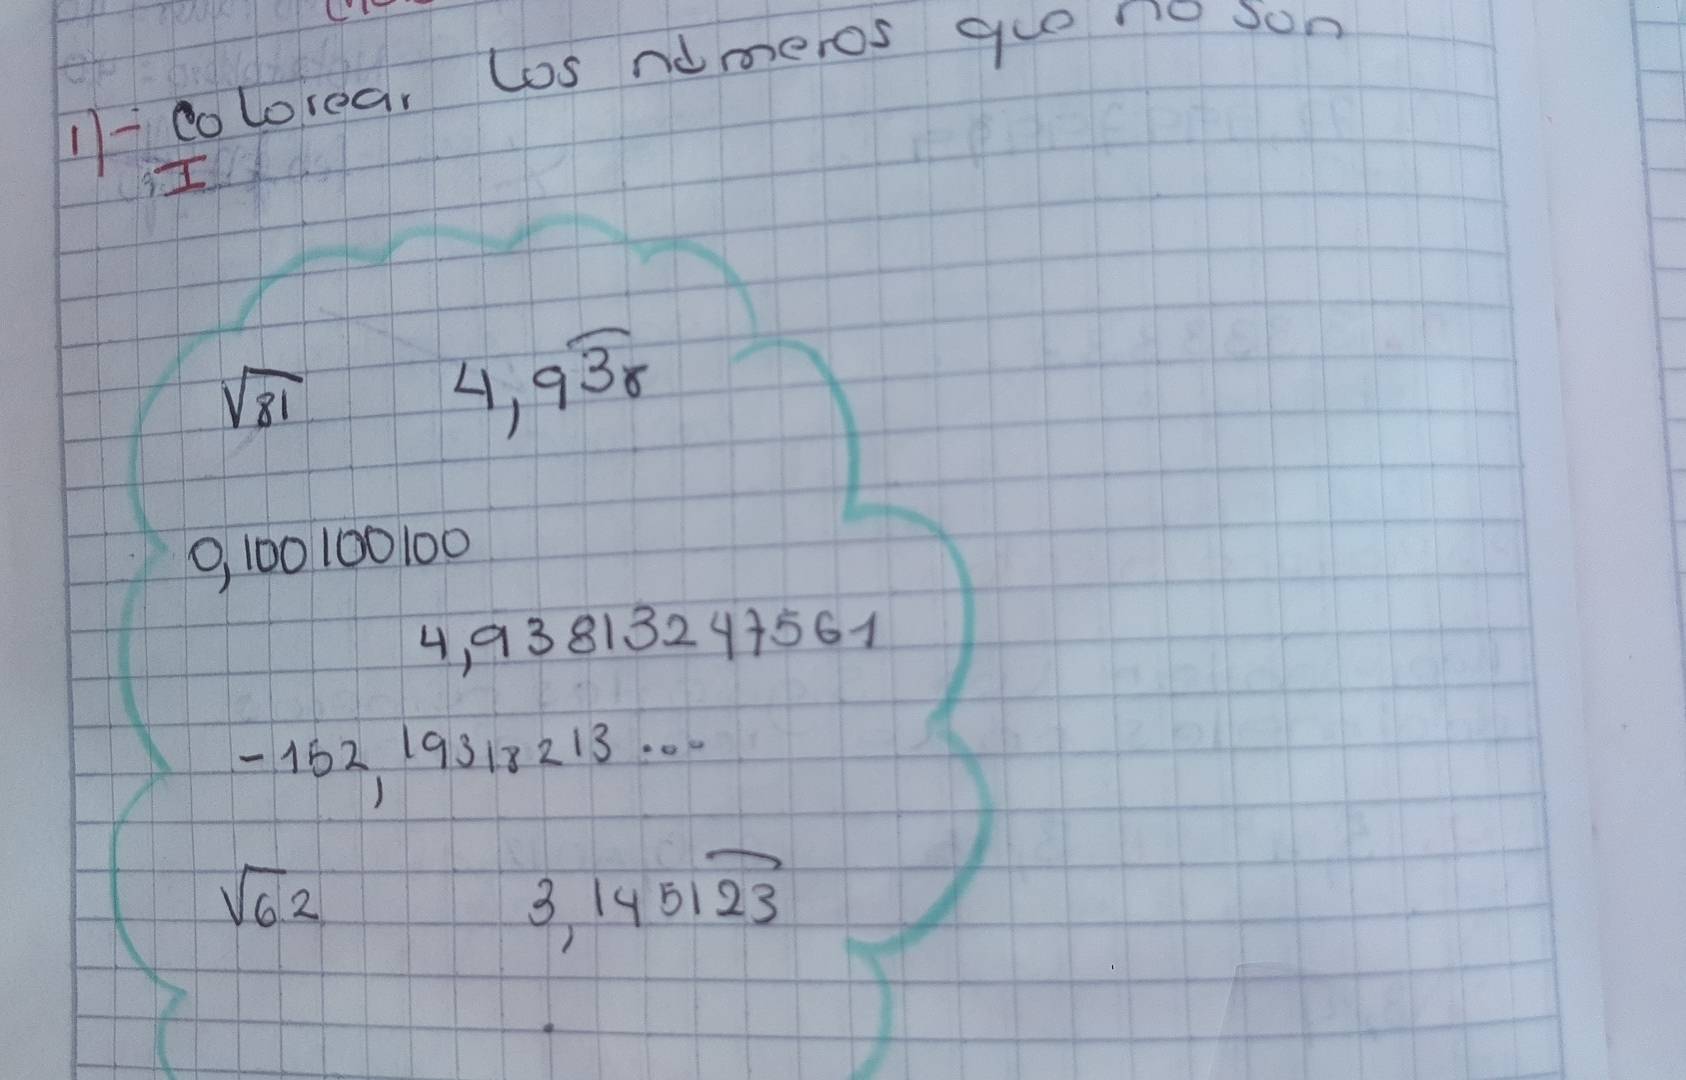 1)- Colorear los números que no son
I
√81 4,938
0,100100100
4,93813247561
-152,19318213...
√62 3,145123